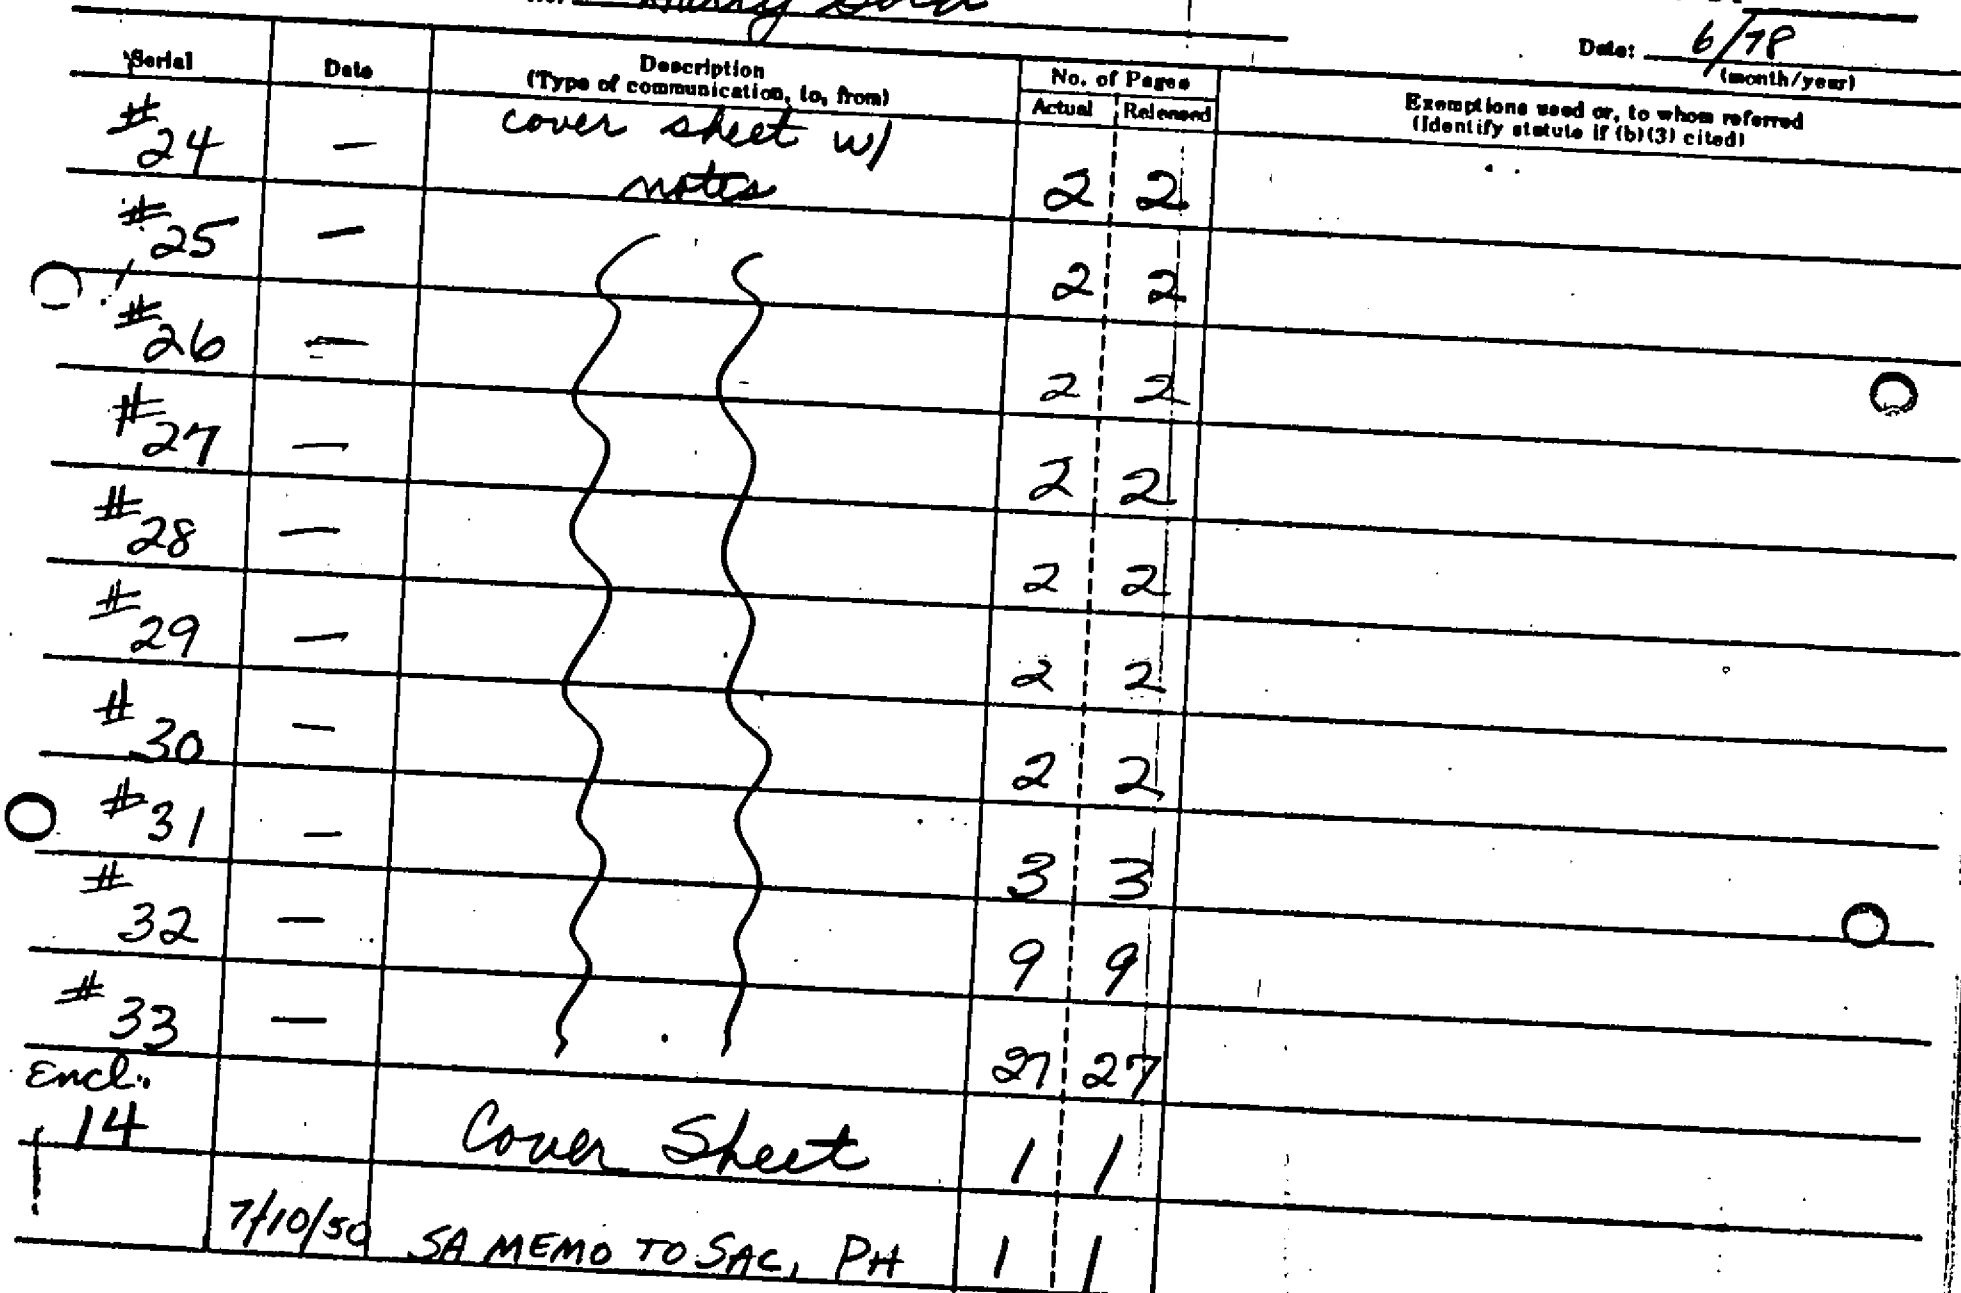 Harry Gold
Date: 6/78
(month/year)
Serial Date Description (Type of communication, to, from) No. of Pages Actual Released Exemptions used or, to whom referred (Identify statute if (b)(3) cited)
# 24 — cover sheet w/ notes 2 2
# 25 — 2 2
# 26 — 2 2
# 27 — 2 2
# 28 — 2 2
# 29 — 2 2
# 30 — 2 2
# 31 — 3 3
# 32 — 9 9
# 33 — 27 27
Encl. 14 Cover Sheet 1 1
7/10/50 SA MEMO TO SAC, PH 1 1